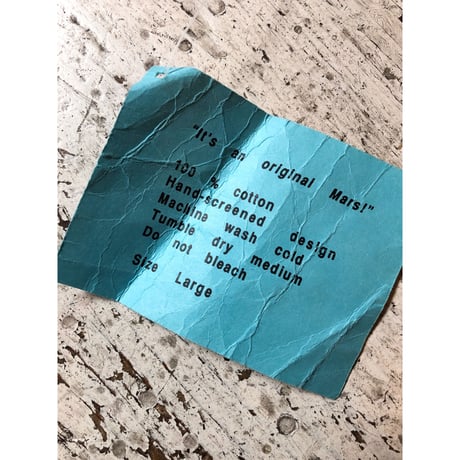 "It's an original Mars!"
100 % cotton
Hand-screened design
Machine wash cold
Tumble dry medium
Do not bleach
Size Large